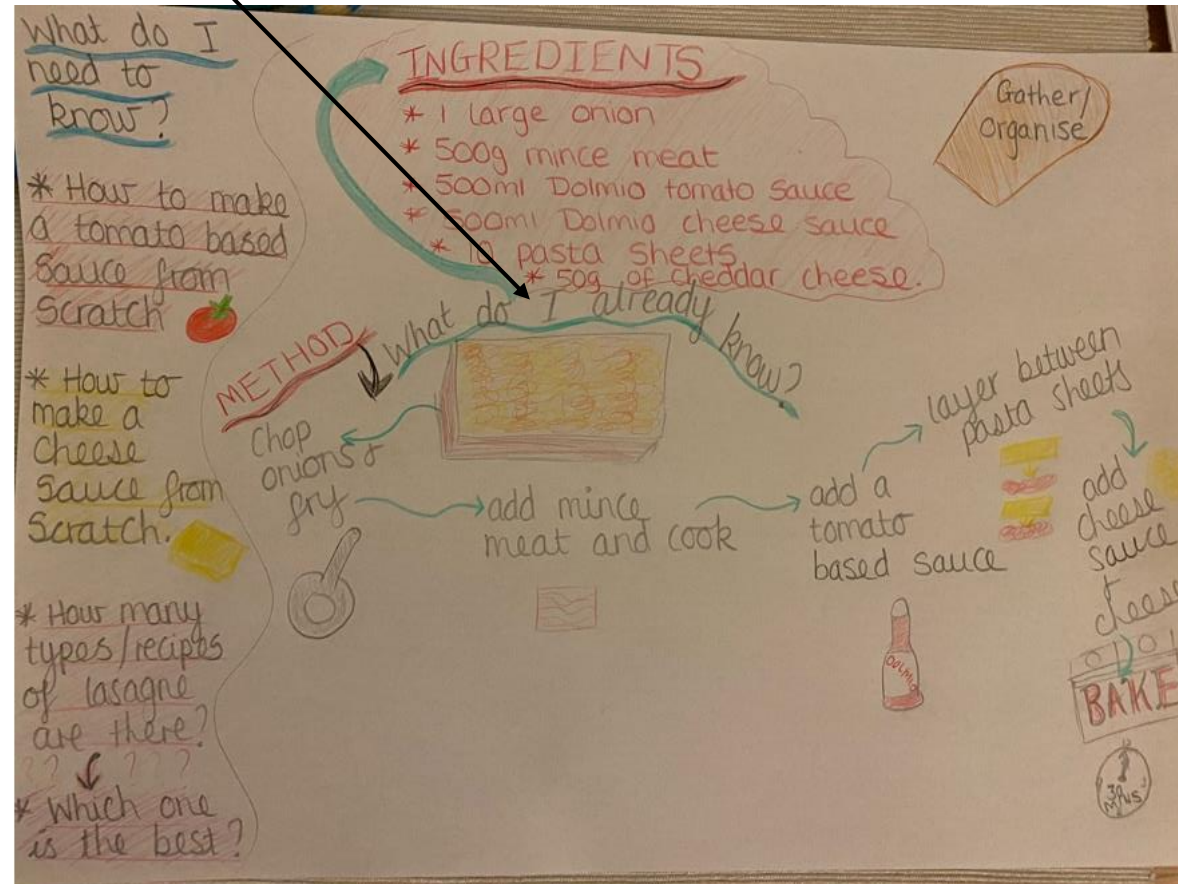 What do I
need to
know?
* How to make
a tomato based
sauce from
Scratch
* How to
make a
cheese
sauce from
Scratch.
* How many
types/recipes
of lasagne
are there?
? ? ? ? ?
* Which one
is the best?
INGREDIENTS
* 1 large onion
* 500g mince meat
* 500ml Dolmio tomato sauce
* 500ml Dolmio cheese sauce
* 10 pasta sheets
* 50g of cheddar cheese.
Gather/
Organise
What do I already know?
METHOD
Chop
onions &
fry
add mince
meat and cook
add a
tomato
based sauce
DOLMIO
layer between
pasta sheets
add
cheese
sauce
+
cheese
BAKE
30
MINS